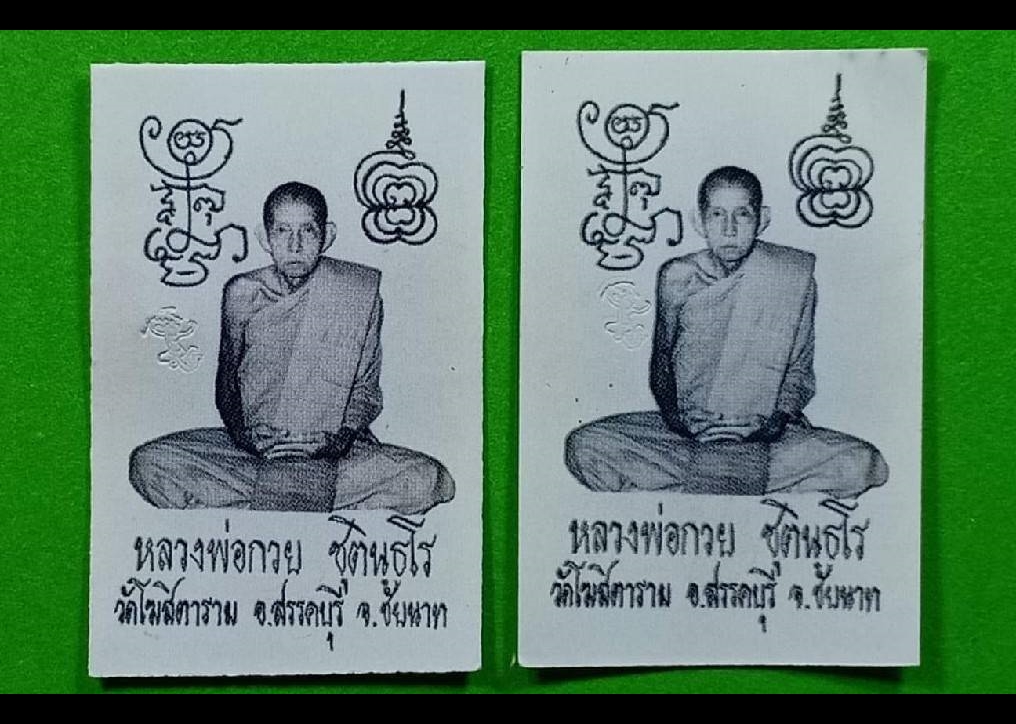 หลวงพ่อกวย ชุตินฺธโร
วัดโฆสิตาราม อ.สรรคบุรี จ.ชัยนาท
หลวงพ่อกวย ชุตินฺธโร
วัดโฆสิตาราม อ.สรรคบุรี จ.ชัยนาท